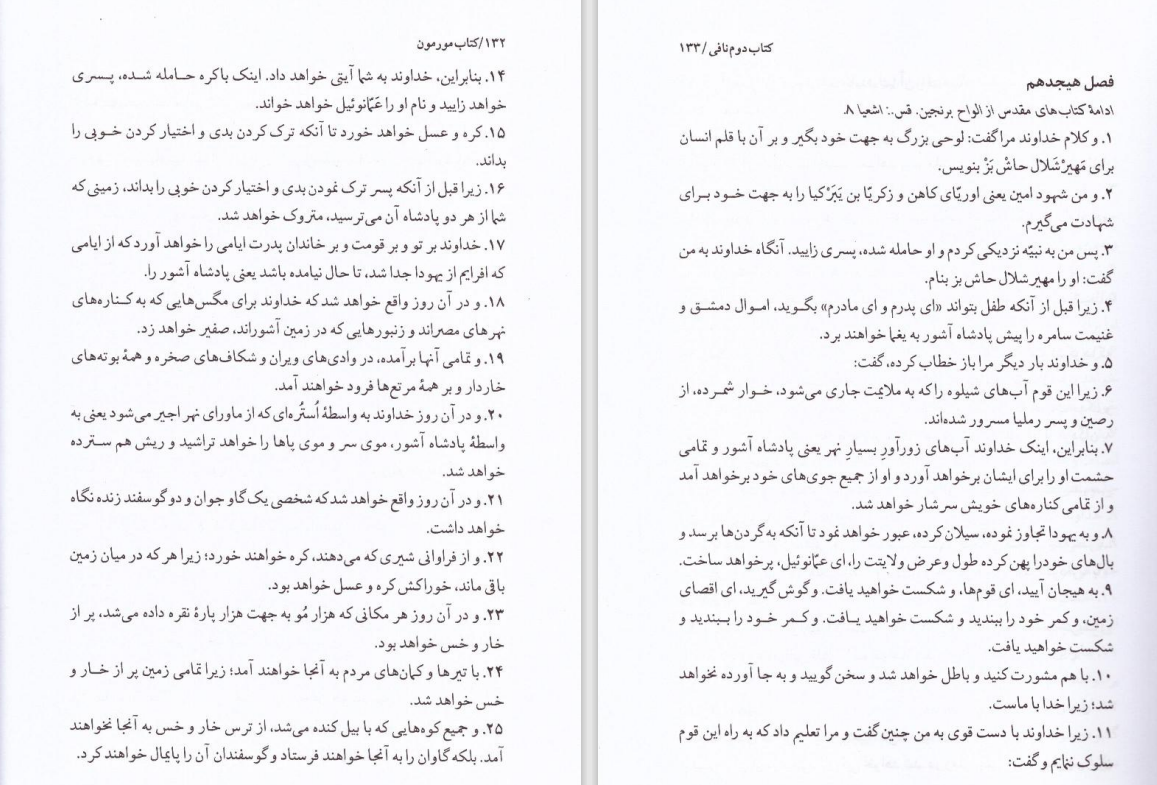 ۱۳۲/کتاب مورمون
۱۴. بنابراین، خداوند به شما آیتی خواهد داد. اینک باکره حامله شده، پسری
خواهد زایید و نام او را عَمّانوئیل خواهد خواند.
۱۵. کره و عسل خواهد خورد تا آنکه ترک کردن بدی و اختیار کردن خوبی را
بداند.
۱۶. زیرا قبل از آنکه پسر ترک نمودن بدی و اختیار کردن خوبی را بداند، زمینی که
شما از هر دو پادشاه آن می‌ترسید، متروک خواهد شد.
۱۷. خداوند بر تو و بر قومت و بر خاندان پدرت ایامی را خواهد آورد که از ایامی
که افرایم از یهودا جدا شد، تا حال نیامده باشد یعنی پادشاه آشور را.
۱۸. و در آن روز واقع خواهد شد که خداوند برای مگس‌هایی که به کناره‌های
نهرهای مصراند و زنبورهایی که در زمین آشوراند، صفیر خواهد زد.
۱۹. و تمامی آنها برآمده، در وادی‌های ویران و شکاف‌های صخره و همهٔ بوته‌های
خاردار و بر همهٔ مرتع‌ها فرود خواهند آمد.
۲۰. و در آن روز خداوند به واسطهٔ اُستُره‌ای که از ماورای نهر اجیر می‌شود یعنی به
واسطهٔ پادشاه آشور، موی سر و موی پاها را خواهد تراشید و ریش هم سترده
خواهد شد.
۲۱. و در آن روز واقع خواهد شد که شخصی یک گاو جوان و دو گوسفند زنده نگاه
خواهد داشت.
۲۲. و از فراوانی شیری که می‌دهند، کره خواهند خورد؛ زیرا هر که در میان زمین
باقی ماند، خوراکش کره و عسل خواهد بود.
۲۳. و در آن روز هر مکانی که هزار مُو به جهت هزار پارهٔ نقره داده می‌شد، پر از
خار و خس خواهد بود.
۲۴. با تیرها و کمان‌های مردم به آنجا خواهند آمد؛ زیرا تمامی زمین پر از خار و
خس خواهد شد.
۲۵. و جمیع کوه‌هایی که با بیل کنده می‌شد، از ترس خار و خس به آنجا نخواهند
آمد. بلکه گاوان را به آنجا خواهند فرستاد و گوسفندان آن را پایمال خواهند کرد.
کتاب دوم نافی/۱۳۳
فصل هیجدهم
ادامهٔ کتاب‌های مقدس از الواح برنجین. قس.: اشعیا ۸.
۱. و کلام خداوند مرا گفت: لوحی بزرگ به جهت خود بگیر و بر آن با قلم انسان
برای مَهیرْشَلال حاشْ بَزْ بنویس.
۲. و من شهود امین یعنی اوریّای کاهن و زکریّا بن یَبَرْکیا را به جهت خود برای
شهادت می‌گیرم.
۳. پس من به نبیّه نزدیکی کردم و او حامله شده، پسری زایید. آنگاه خداوند به من
گفت: او را مهیرشلال حاش بز بنام.
۴. زیرا قبل از آنکه طفل بتواند «ای پدرم و ای مادرم» بگوید، اموال دمشق و
غنیمت سامره را پیش پادشاه آشور به یغما خواهند برد.
۵. و خداوند بار دیگر مرا باز خطاب کرده، گفت:
۶. زیرا این قوم آب‌های شیلوه را که به ملایمت جاری می‌شود، خوار شمرده، از
رصین و پسر رملیا مسرور شده‌اند.
۷. بنابراین، اینک خداوند آب‌های زورآورِ بسیارِ نهر یعنی پادشاه آشور و تمامی
حشمت او را برای ایشان برخواهد آورد و او از جمیع جوی‌های خود برخواهد آمد
و از تمامی کناره‌های خویش سرشار خواهد شد.
۸. و به یهودا تجاوز نموده، سیلان کرده، عبور خواهد نمود تا آنکه به گردن‌ها برسد و
بال‌های خود را پهن کرده طول و عرض ولایتت را، ای عمّانوئیل، پرخواهد ساخت.
۹. به هیجان آیید، ای قوم‌ها، و شکست خواهید یافت. و گوش گیرید، ای اقصای
زمین، و کمر خود را ببندید و شکست خواهید یافت. و کمر خود را ببندید و
شکست خواهید یافت.
۱۰. با هم مشورت کنید و باطل خواهد شد و سخن گویید و به جا آورده نخواهد
شد؛ زیرا خدا با ماست.
۱۱. زیرا خداوند با دست قوی به من چنین گفت و مرا تعلیم داد که به راه این قوم
سلوک ننمایم و گفت: